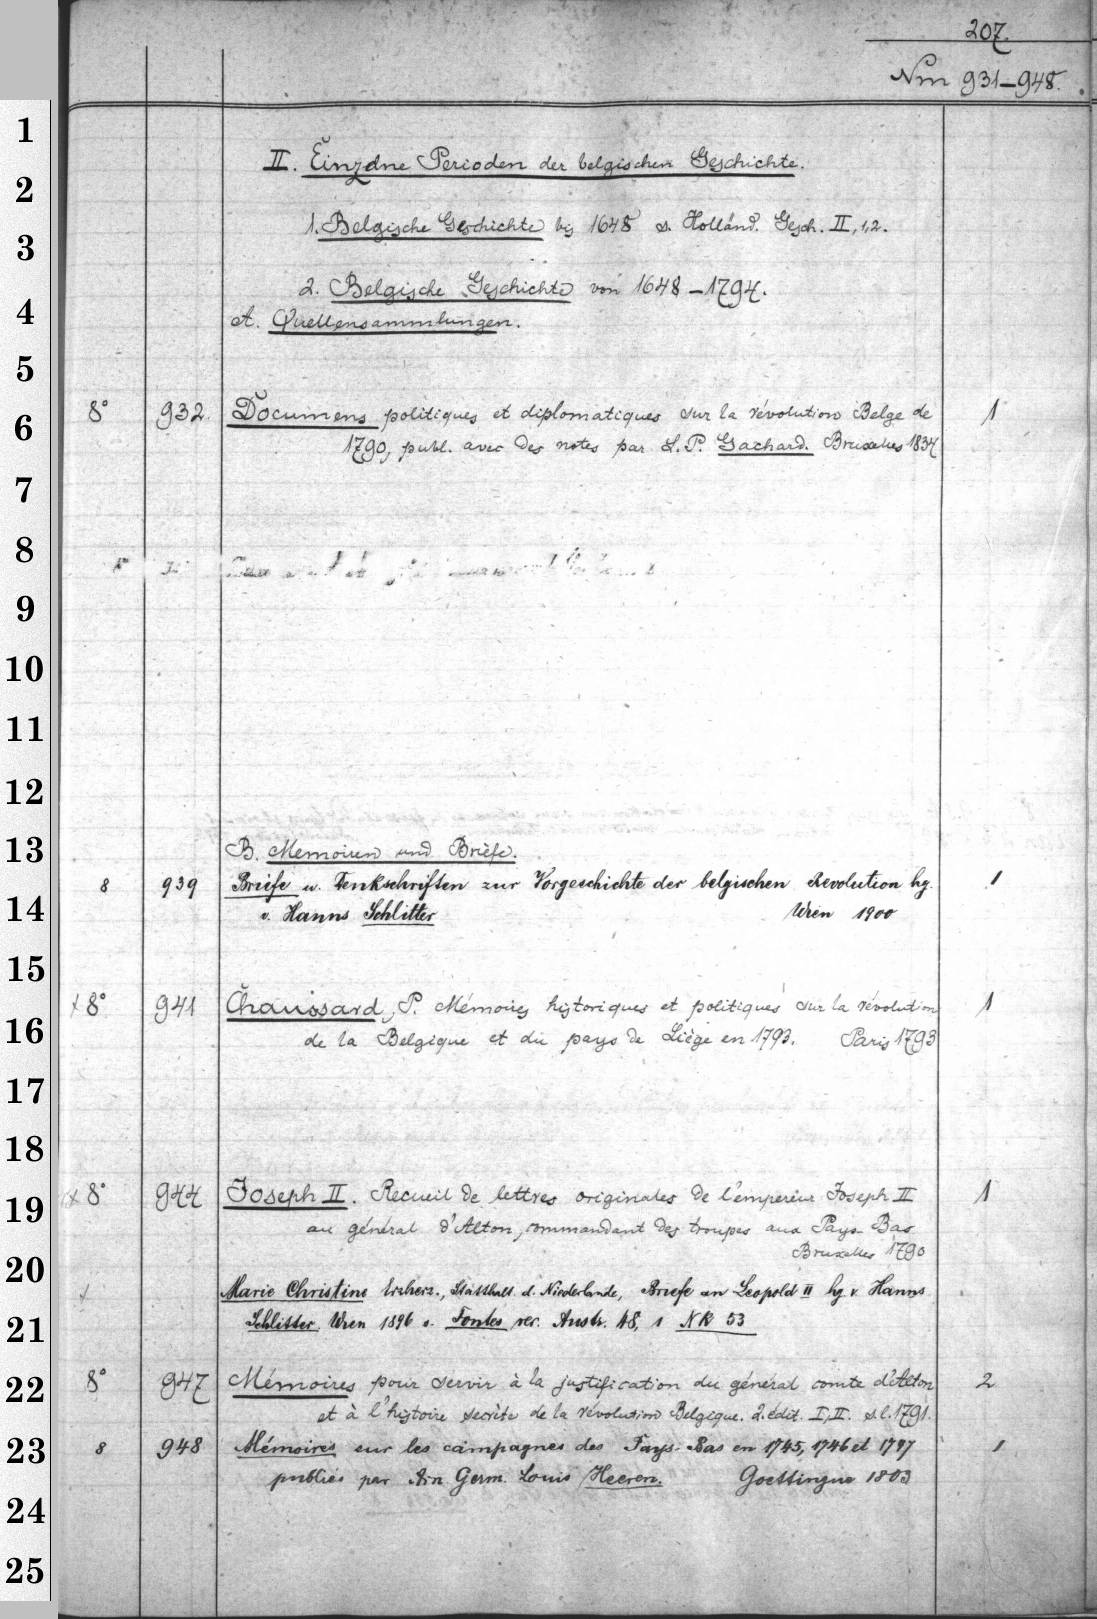 207.
Nm 931–948.
II. Einzelne Perioden der belgischen Geschichte.
1. Belgische Geschichte bis 1648 s. Holländ. Gesch. II, 1,2.
2. Belgische Geschichte von 1648–1794.
A. Quellensammlungen.
8° 932. Documens politiques et diplomatiques sur la révolution Belge de 1
1790, publ. avec des notes par L. P. Gachard. Bruxelles 1834
B. Memoiren und Briefe.
8 939 Briefe u. Denkschriften zur Vorgeschichte der belgischen Revolution hg. 1
v. Hanns Schlitter Wien 1900
x 8° 941 Chaussard, P. Mémoires historiques et politiques sur la révolution 1
de la Belgique et du pays de Liège en 1793. Paris 1793
x 8° 944 Joseph II. Recueil de lettres originales de l'empereur Joseph II 1
au général d'Alton, commandant des troupes aux Pays-Bas
Bruxelles 1790
Marie Christine Erzherz., Statthalt. d. Niederlande, Briefe an Leopold II hg v. Hanns
Schlitter, Wien 1896 s. Fontes rer. Austr. 48, 1 NR 53
8° 947 Mémoires pour servir à la justification du général comte d'Alton 2
et à l'histoire secrète de la révolution Belgique. 2. édit. I, II. s. l. 1791.
8 948 Mémoires sur les campagnes des Pays-Bas en 1745, 1746 et 1747 1
publiés par Arn. Germ. Louis Heeren. Goettingue 1803
1
2
3
4
5
6
7
8
9
10
11
12
13
14
15
16
17
18
19
20
21
22
23
24
25